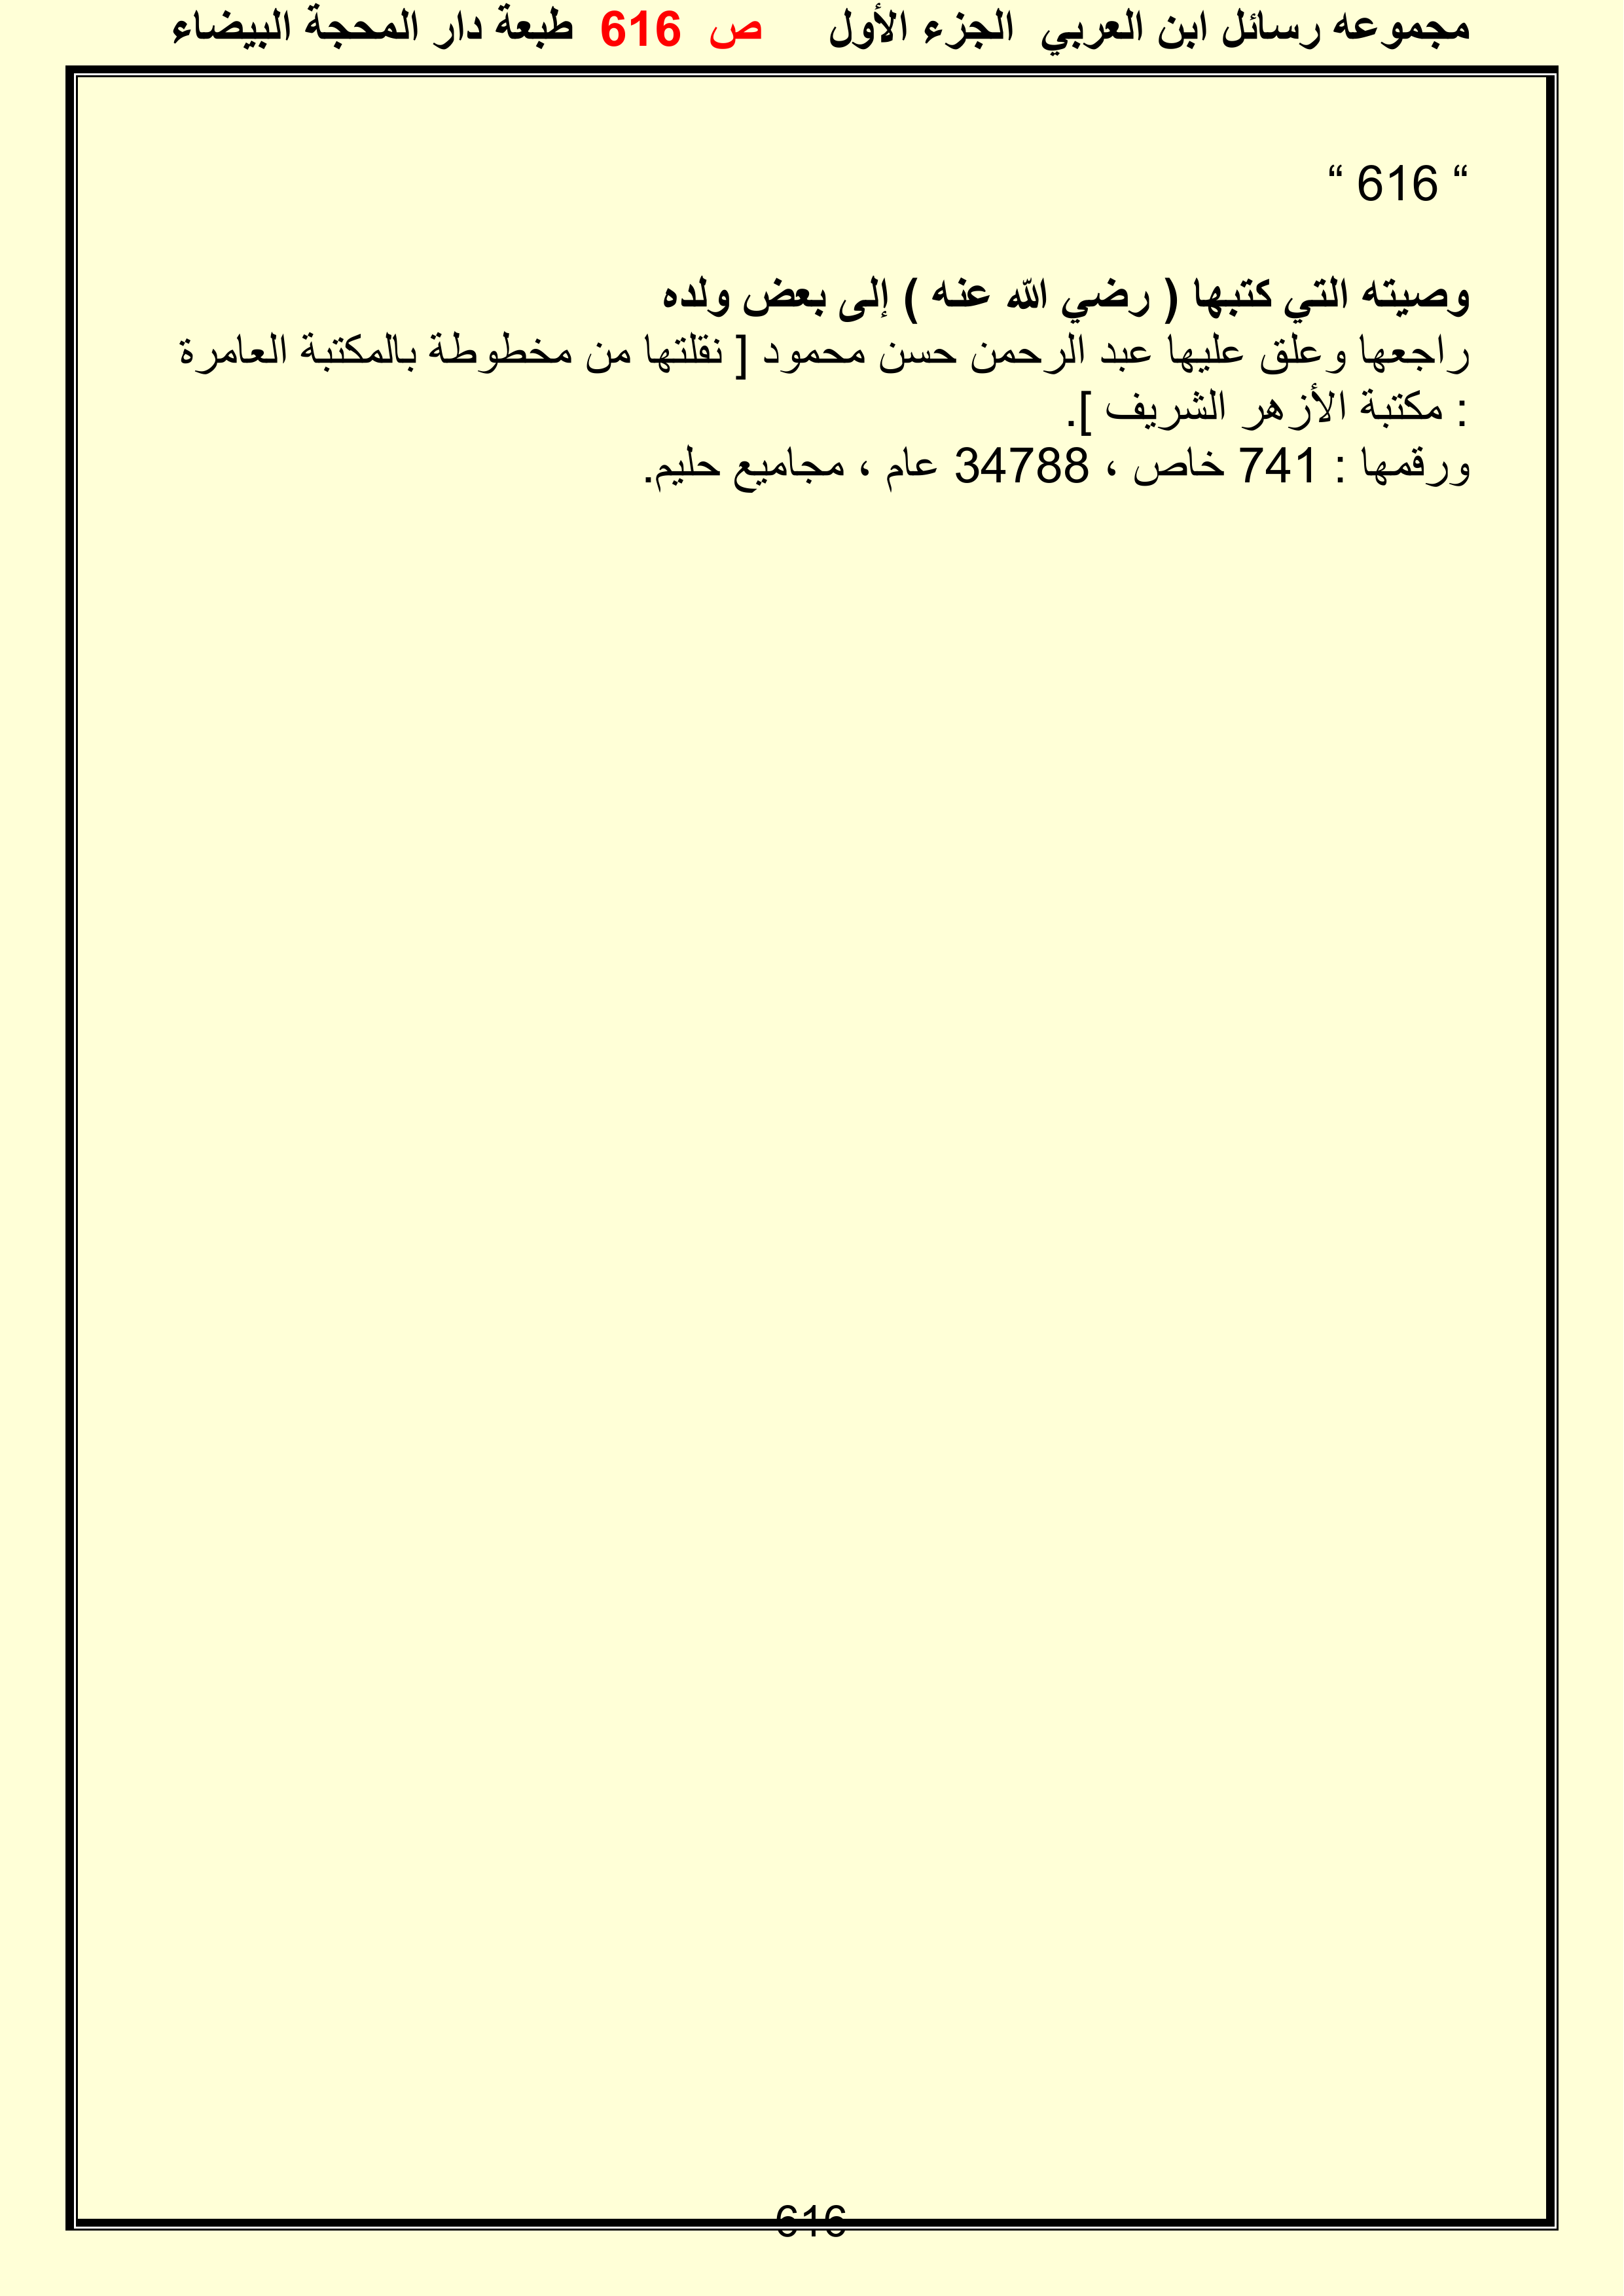 مجموعه رسائل ابن العربي الجزء الأول ص 616 طبعة دار المحجة البيضاء
“ 616 “
وصيته التي كتبها ( رضي الله عنه ) إلى بعض ولده
راجعها وعلق عليها عبد الرحمن حسن محمود [ نقلتها من مخطوطة بالمكتبة العامرة
: مكتبة الأزهر الشريف ].
ورقمها : 741 خاص ، 34788 عام ، مجاميع حليم.
616